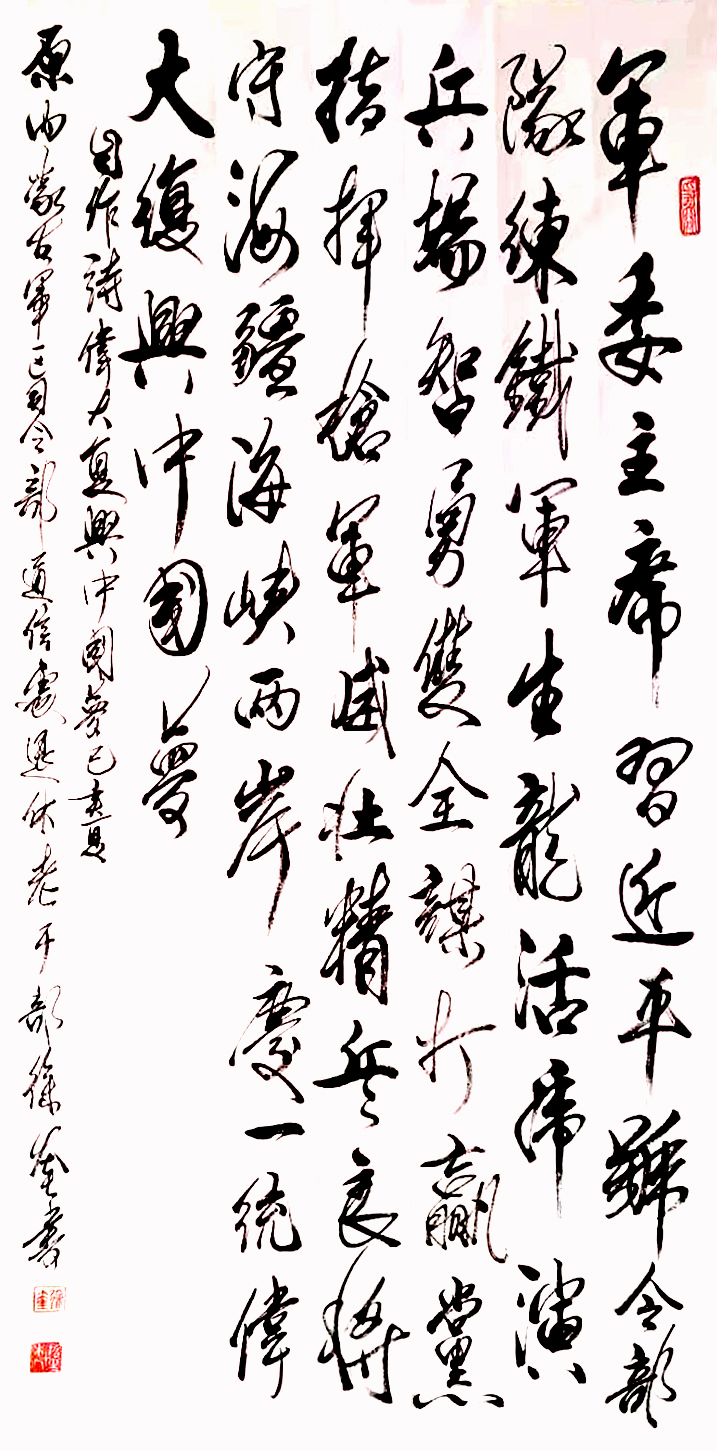 軍委主席習近平號令部
隊練鐵軍生龍活虎演
兵場智勇雙全謀打贏黨
指揮槍軍威壯精兵良將
守海疆海峽兩岸慶一統偉
大復興中國夢
自作詩偉大復興中國夢己亥夏
原内蒙古軍区司令部通信處退休老干部徐華書